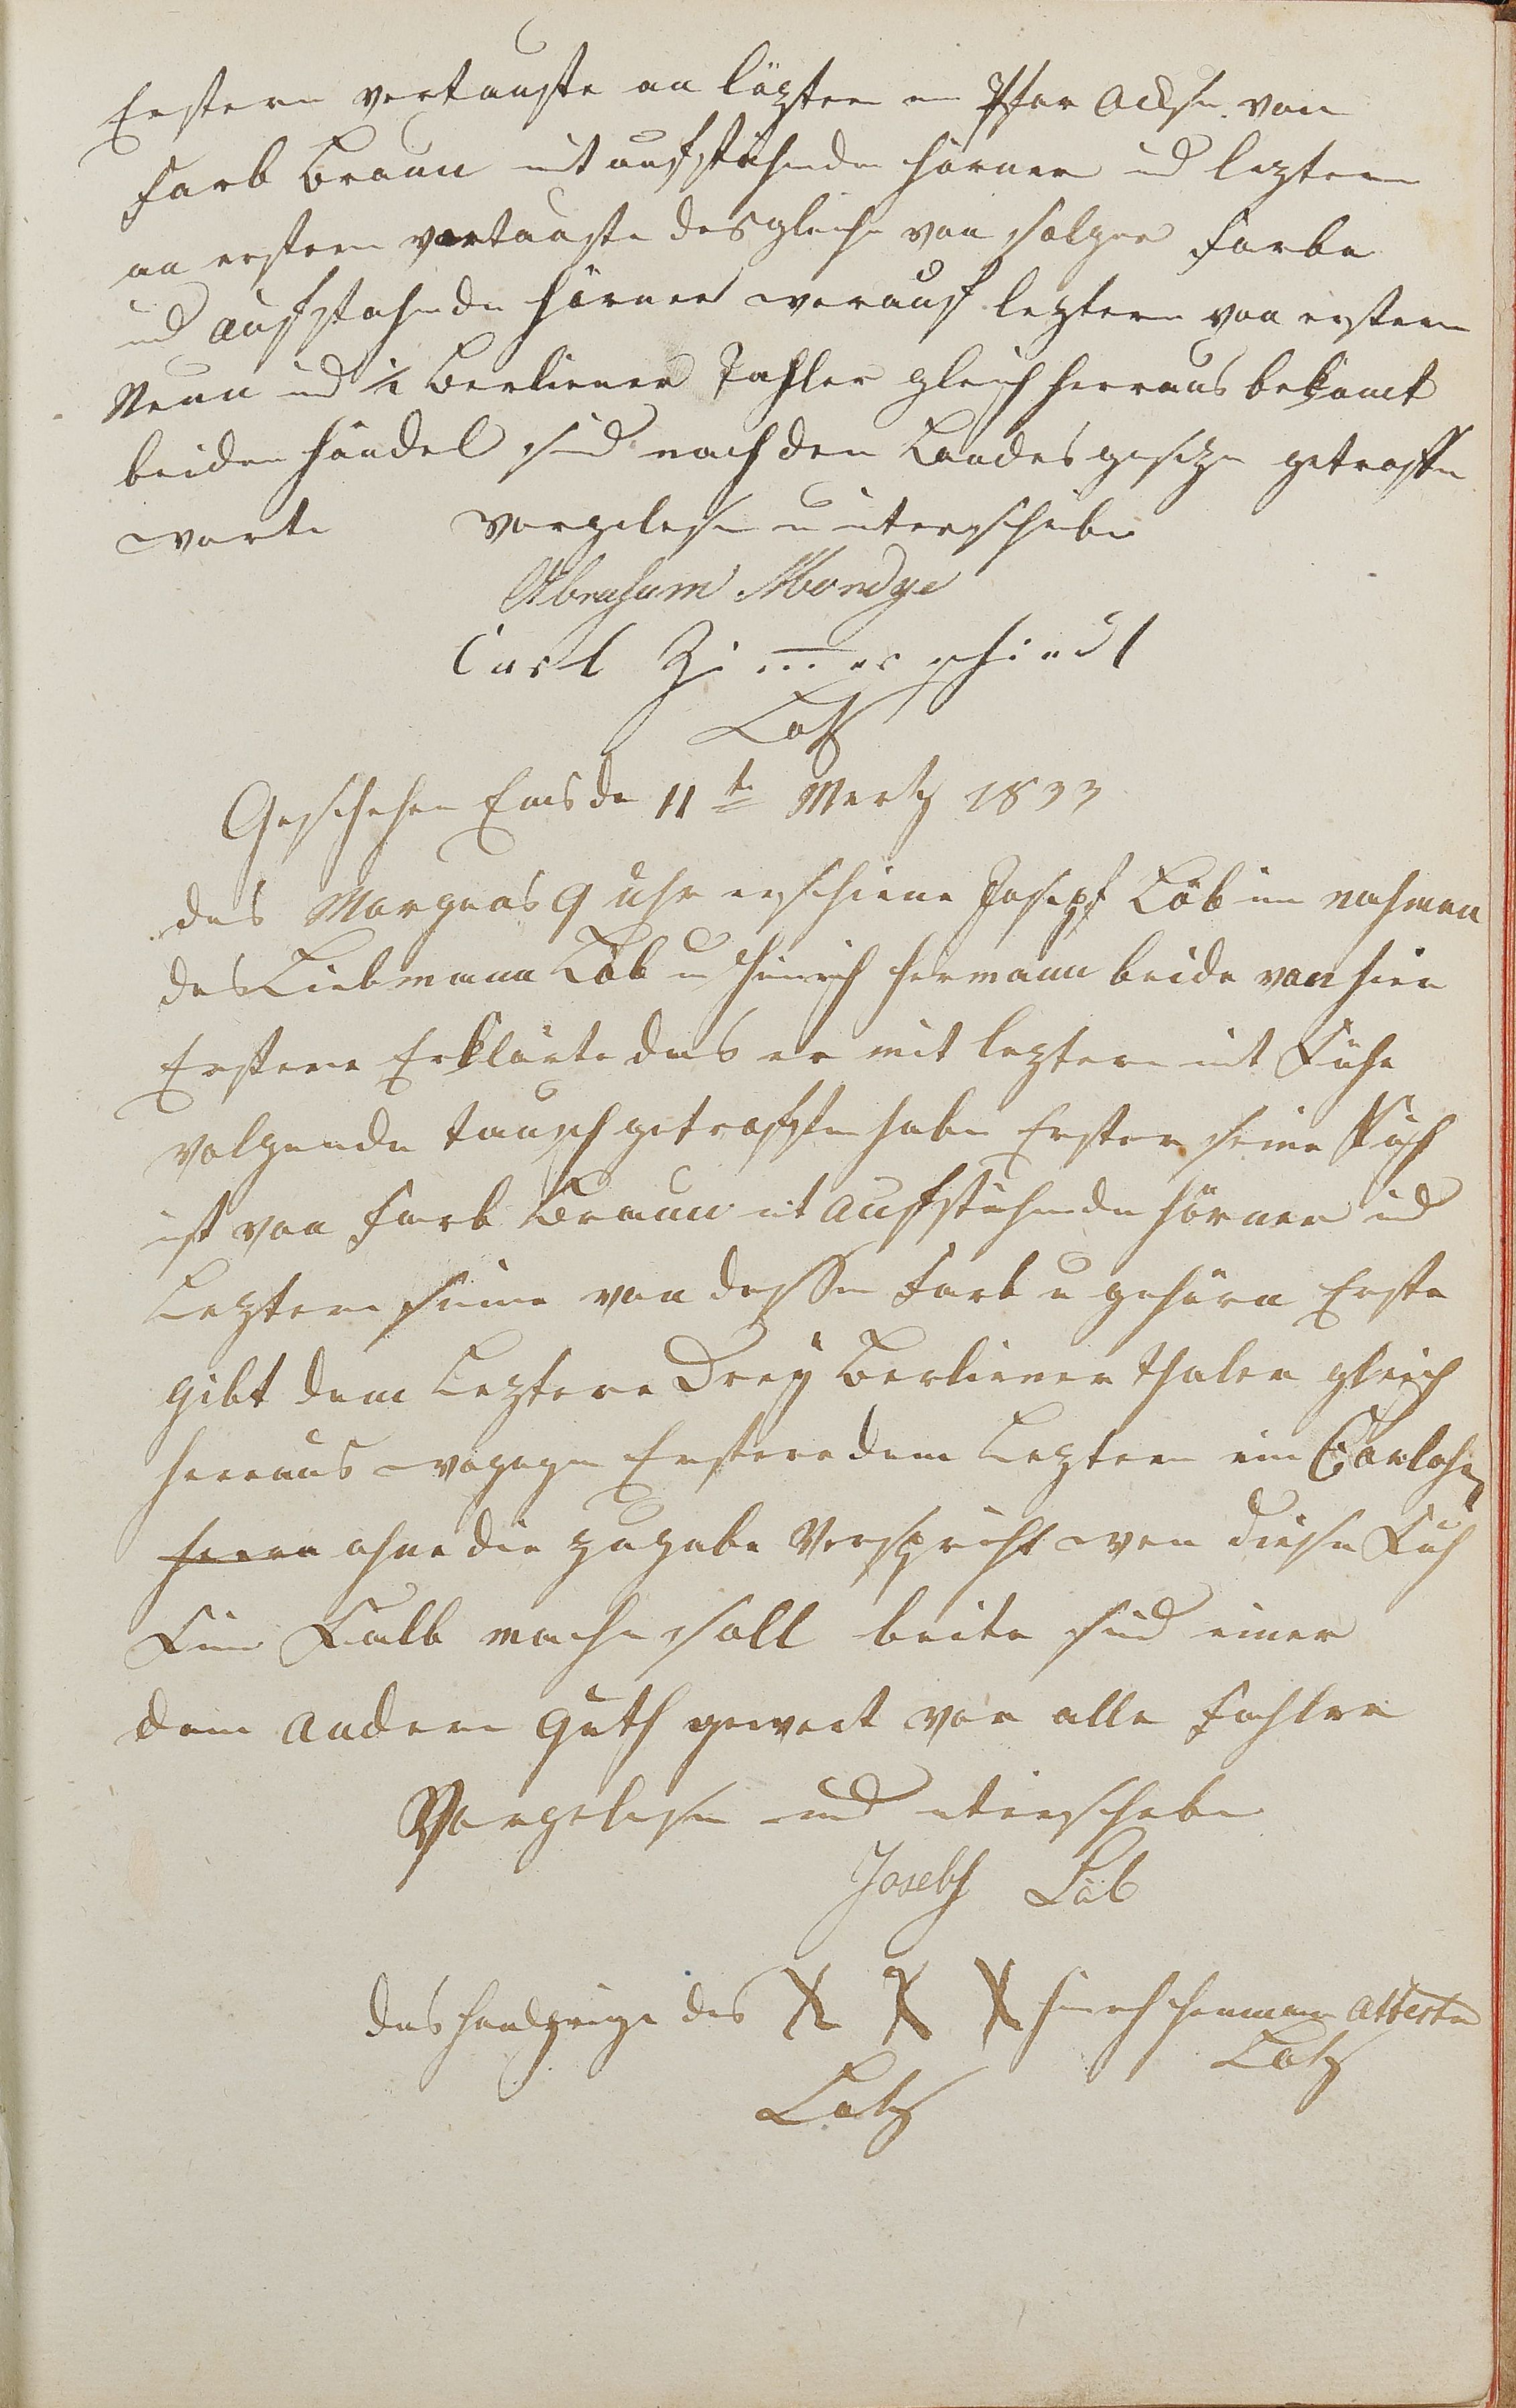 Erstern vertauschte an läztern ein Pfar Ocksn. von
Farb Braun mit aufstähenden Hörner und leztern
an erstern vertauschte desgleichen von solger Farbe
und aufstahende Hörner worauf leztern von erstern
Neun und ½ Berliener Tahler gleich herraus bekomt
beiden Händel sind nach den Landesgesetzen getroffen
worte vorgelesen u unterschieben
Abraham Mondye
Carl Zimmerschiedt
Lotz
Geschehen Ems den 11ten Mertz 1833
des Morgens 9 Uhr erschiene Joseph Löb im nahmen
des Liebmann Löb u Hinrich Hermann beide von hier
Erstere Erklärte das er mit leztern mit Kühe
volgende tausch getroffen habe Erster seine Kuh
ist von Farb Braun mit aufstehende Hörner und
Leztern seine von dessen Farb u gehörn Erste
gibt dem Leztern Drey Berliener thaler gleich
herraus wogegen Erstere dem Leztern ein Carlohn
herra ohne die zugabe Verspricht wen diese Kuh
Kein Kalb mache soll beite sind einer
dem andern Guth gewert vor alle Fehler
Vorgelesen und unterschieben
Josebh Löb
das Handzeige des X X X Hinrich Hermann attestn
Lotz
Lotz